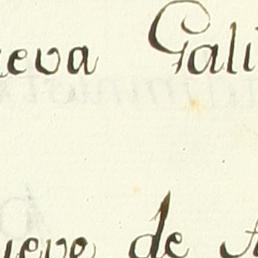 ueva Gali
ueve de